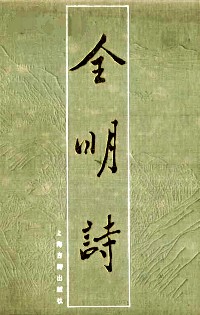 全明詩
上海古籍出版社